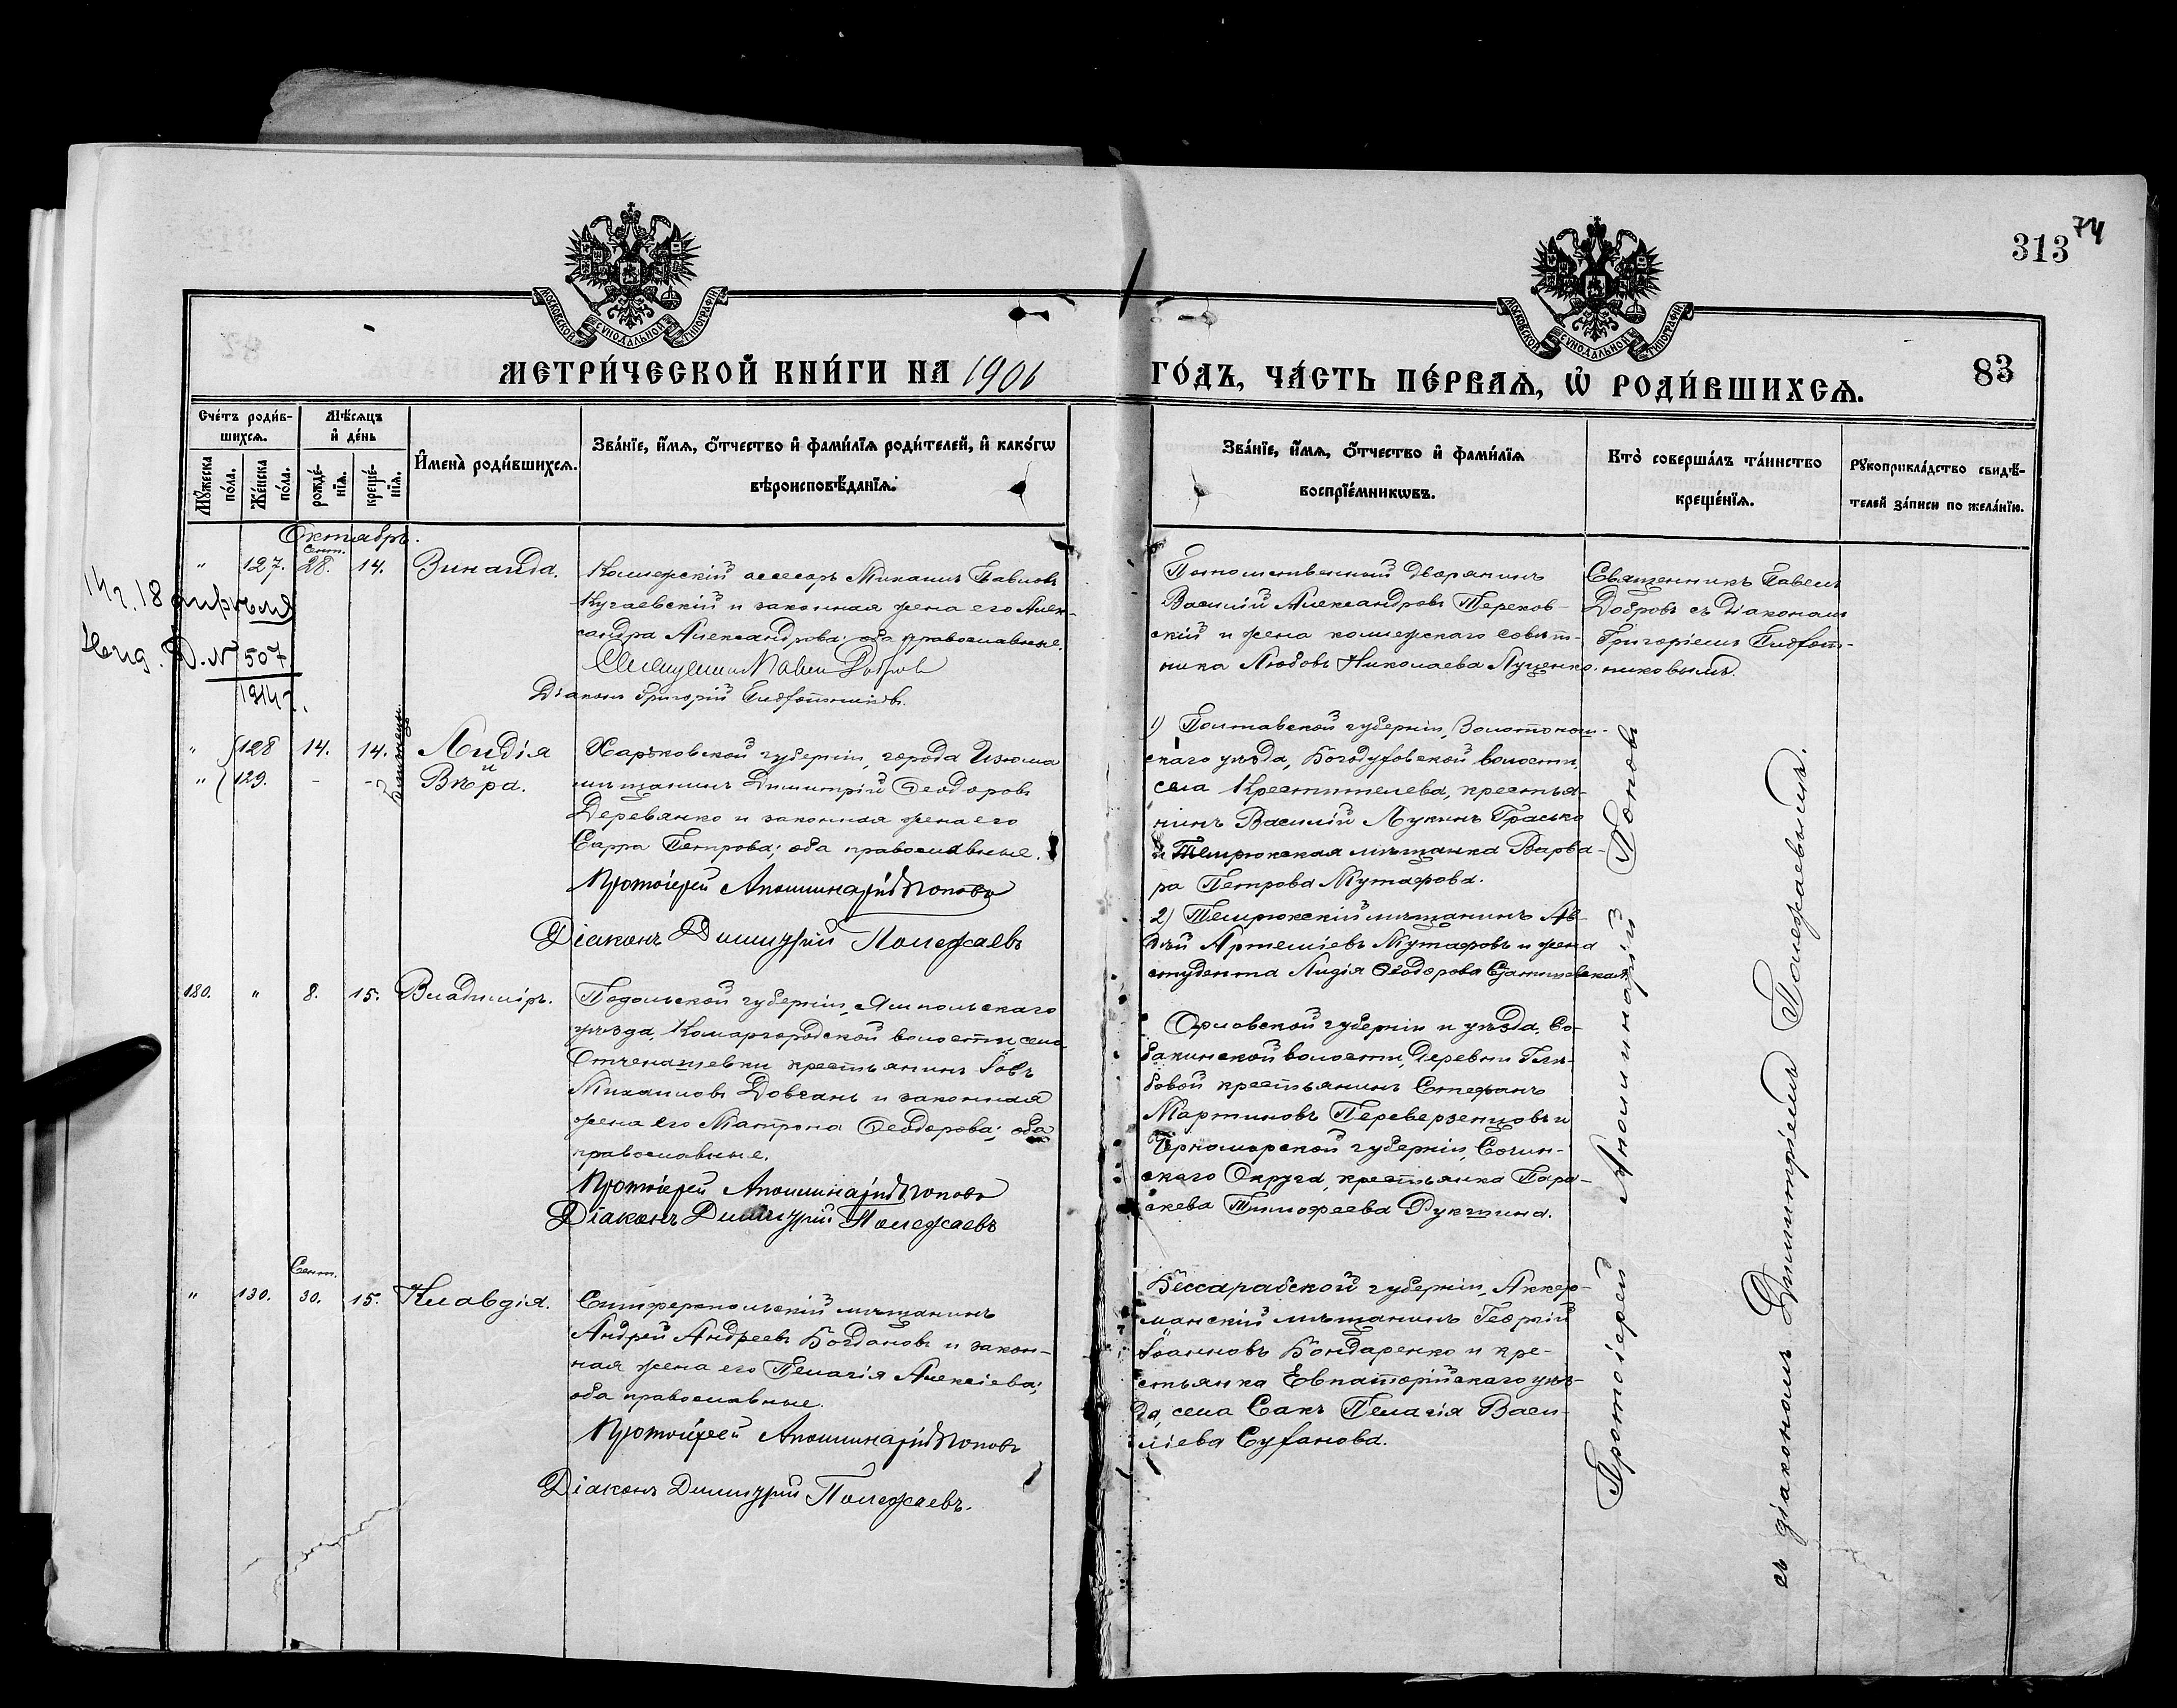 313
74
83
МОСКОВСКОЙ СѴНОДАЛЬНОЙ ТИПОГРАФІИ
МОСКОВСКОЙ СѴНОДАЛЬНОЙ ТИПОГРАФІИ
МЕТРИ́ЧЕСКОЙ КНИ́ГИ НА 1901
ГО́ДЪ, ЧА́СТЬ ПЕ́РВАѦ, Ѡ҆ РОДИ́ВШИХСѦ.
Сче́тъ роди́в-
шихсѧ.
Мѣ́сѧцъ
и҆ де́нь
Мꙋ́жеска
по́ла.
Же́нска
по́ла.
рожде́-
нїѧ.
креще́-
нїѧ.
И҆мена̀ роди́вшихсѧ.
Зва́нїе, и҆́мѧ, ѻ҆́тчество и҆ фами́лїѧ роди́телей, и҆ како́гѡ
вѣроисповѣ́данїѧ.
Зва́нїе, и҆́мѧ, ѻ҆́тчество и҆ фами́лїѧ
воспрїе́мникѡвъ.
Кто̀ соверша́лъ та́инство
креще́нїѧ.
Рꙋкоприкла́дство свидѣ́-
телей за́писи по жела́нїю.
Октябрь.
Сент.
" 127. 28. 14. Зинаида.
Коллежскій ассесоръ Михаилъ Павловъ
Кугаевскій и законная жена его Алек-
сандра Александрова; оба православные.
Священникъ Павелъ Добровъ
Діаконъ Григорій
14 г. 18 апрѣля
Д. № 507
1914 г.
Потомственный дворянинъ
Василій Александровъ Терехов-
скій и жена коллежскаго совѣт-
ника Любовь Николаева Луценко.
Священникъ Павелъ
Добровъ съ діакономъ
Григоріемъ
никовымъ.
" 128 14. 14. Лидія
и
" 129. - - Вѣра.
близнецы.
Харьковской губерніи, города Изюма
мѣщанинъ Димитрій Ѳеодоровъ
Деревянко и законная жена его
Сарра Петрова; оба православные.
Протоіерей Аполлинарій Поповъ
Діаконъ Димитрій Полежаевъ
1) Полтавской губерніи, Золотонош-
скаго уѣзда, Богодуховской волости,
села Крестителева, крестья-
нинъ Василій Лукинъ Грасько
и Темрюкская мѣщанка Варва-
ра Петрова Мутафова.
2) Темрюкскій мѣщанинъ Ав-
дѣй Артеміевъ Мутафовъ и жена
студента Лидія Ѳеодорова
180. " 8. 15. Владиміръ.
Подольской губерніи, Ямпольскаго
уѣзда, Комаргородской волости, села
Отченашевки крестьянинъ Іовъ
Михаиловъ Довгань и законная
жена его Матрона Ѳеодорова; оба
православные.
Протоіерей Аполлинарій Поповъ
Діаконъ Димитрій Полежаевъ
Орловской губерніи и уѣзда, Со-
бакинской волости, деревни Глѣ-
бовой крестьянинъ Стефанъ
Мартиновъ Переверзенцовъ и
Черноморской губерніи, Сочин-
скаго Округа, крестьянка Пара-
скева Тимофеева Лукшина.
Сент.
" 130. 30. 15. Клавдія.
Симферопольскій мѣщанинъ
Андрей Андреевъ Богдановъ и закон-
ная жена его Пелагія Алексіева;
оба православные.
Протоіерей Аполлинарій Поповъ
Діаконъ Димитрій Полежаевъ.
Бессарабской губерніи, Аккер-
манскій мѣщанинъ Георгій
Іоанновъ Бондаренко и кре-
стьянка Евпаторійскаго уѣз-
да, села Сакъ Пелагія Васи-
ліева Суханова.
Протоіерей Аполлинарій Поповъ
съ діакономъ Димитріемъ Полежаевымъ.